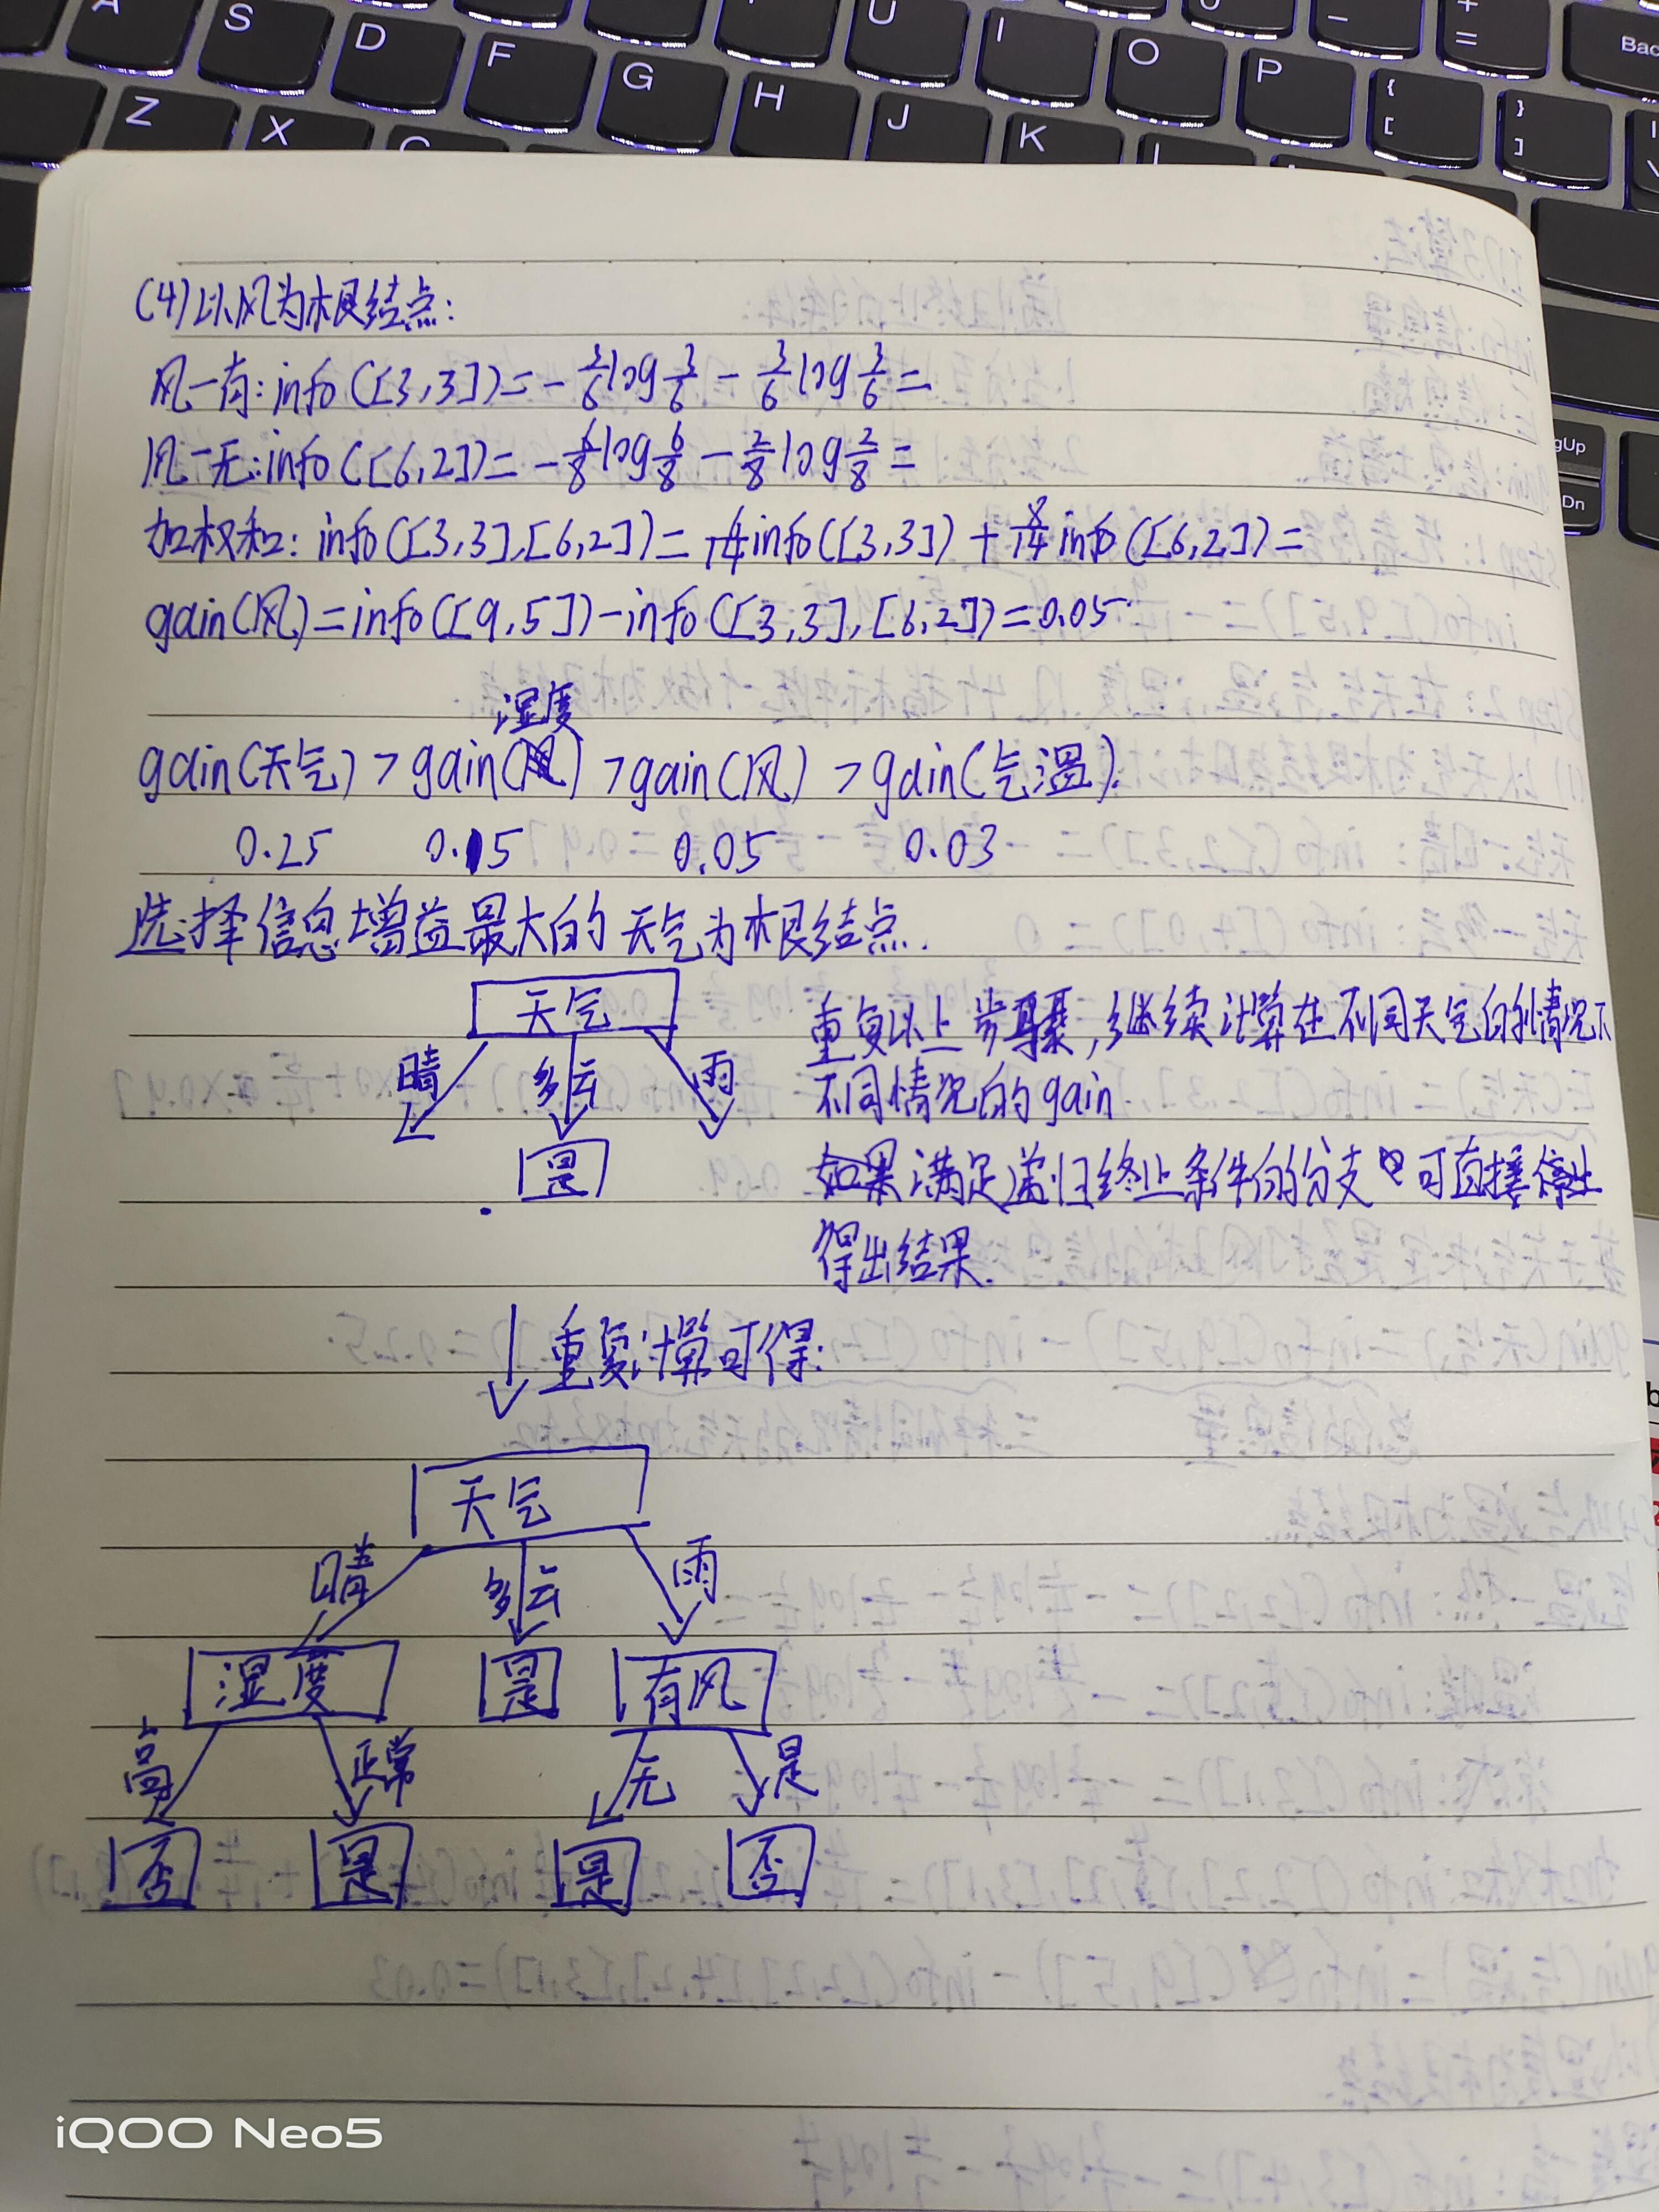 A S D F G H J K L U I O P
Z X C
Bac
gUp
Dn
(4)以风为根结点:
风-有:info([3,3])=-3/6log3/6-3/6log3/6=
风-无:info([6,2])=-6/8log6/8-2/8log2/8=
加权和:info([3,3],[6,2])=6/14info([3,3])+8/14info([6,2])=
gain(风)=info([9,5])-info([3,3],[6,2])=0.05
湿度
gain(天气)>gain( )>gain(风)>gain(气温).
0.25 0.15 0.05 0.03
选择信息增益最大的天气为根结点.
天气
晴 多云 雨
是
重复以上步骤,继续计算在不同天气的情况下
不同情况的gain
如果满足递归终止条件的分支可直接停止
得出结果.
重复计算可得:
天气
晴 多云 雨
湿度 是 有风
高 正常 无 是
否 是 是 否
iQOO Neo5